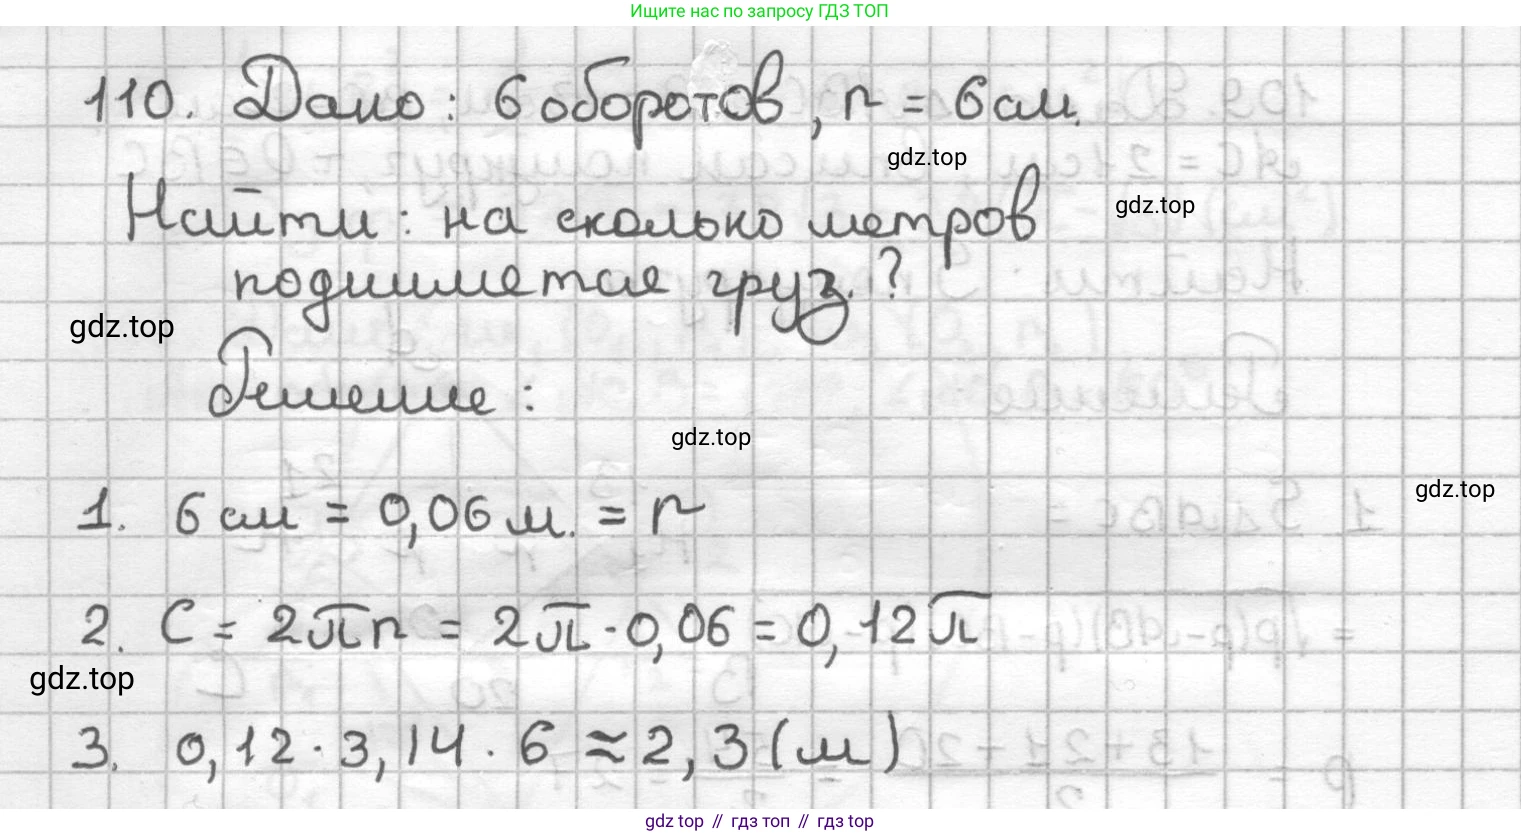 Ищите нас по запросу ГДЗ ТОП
110. Дано: 6 оборотов, r = 6 см.
gdz.top
Найти: на сколько метров
gdz.top
поднимется груз.?
gdz.top
Решение:
gdz.top
gdz.top
1. 6 см = 0,06 м. = r
2. C = 2πr = 2π·0,06 = 0,12π
gdz.top
3. 0,12·3,14·6 ≈ 2,3 (м)
gdz top // гдз топ // gdz top